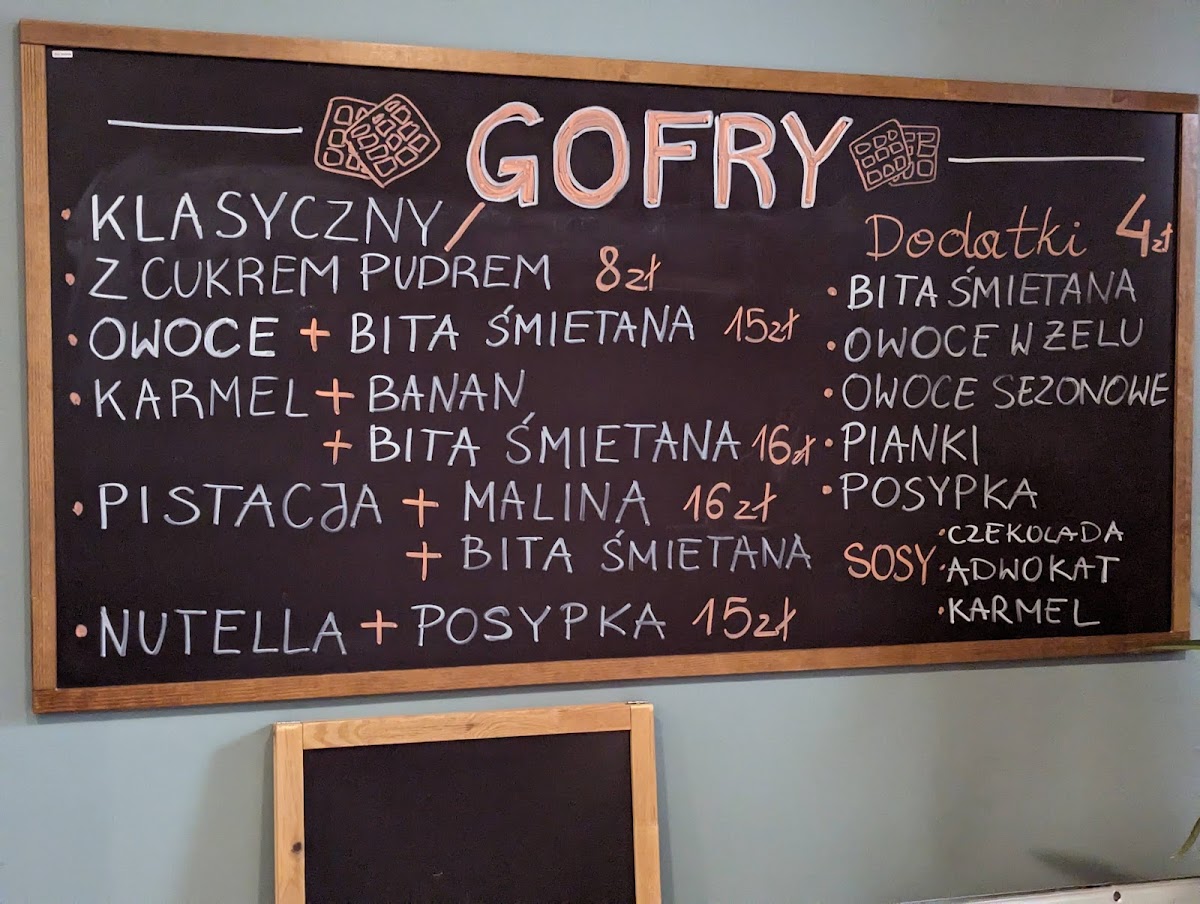 GOFRY
• KLASYCZNY /
• Z CUKREM PUDREM 8zł
• OWOCE + BITA ŚMIETANA 15zł
• KARMEL + BANAN
+ BITA ŚMIETANA 16zł
• PISTACJA + MALINA 16zł
+ BITA ŚMIETANA
• NUTELLA + POSYPKA 15zł
Dodatki 4zł
• BITA ŚMIETANA
• OWOCE W ŻELU
• OWOCE SEZONOWE
• PIANKI
• POSYPKA
SOSY
• CZEKOLADA
• ADWOKAT
• KARMEL